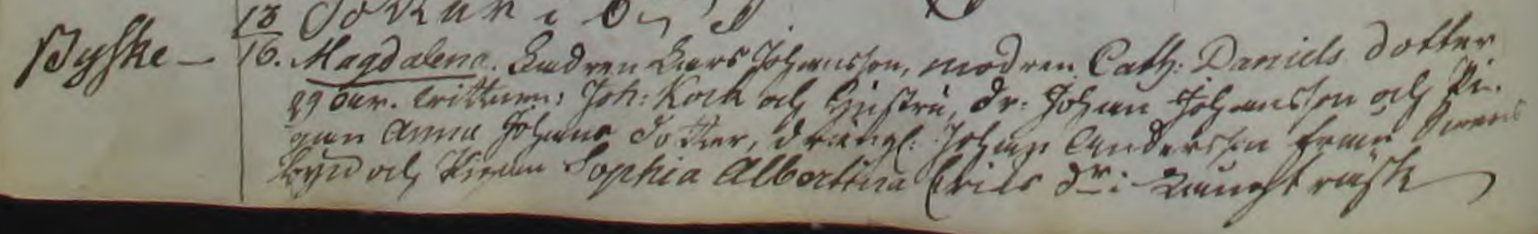 Byske — 13/16. Magdalena. Fadren Lars Johansson, modren Cath: Daniels dotter
29 år. Vittnen: Joh: Kock och Hustru, Dr: Johan Johansson och Pi-
gan Anna Johans Dotter, Drängl: Johan Andersson från
byn och Pigan Sophia Albertina Erics Dr i